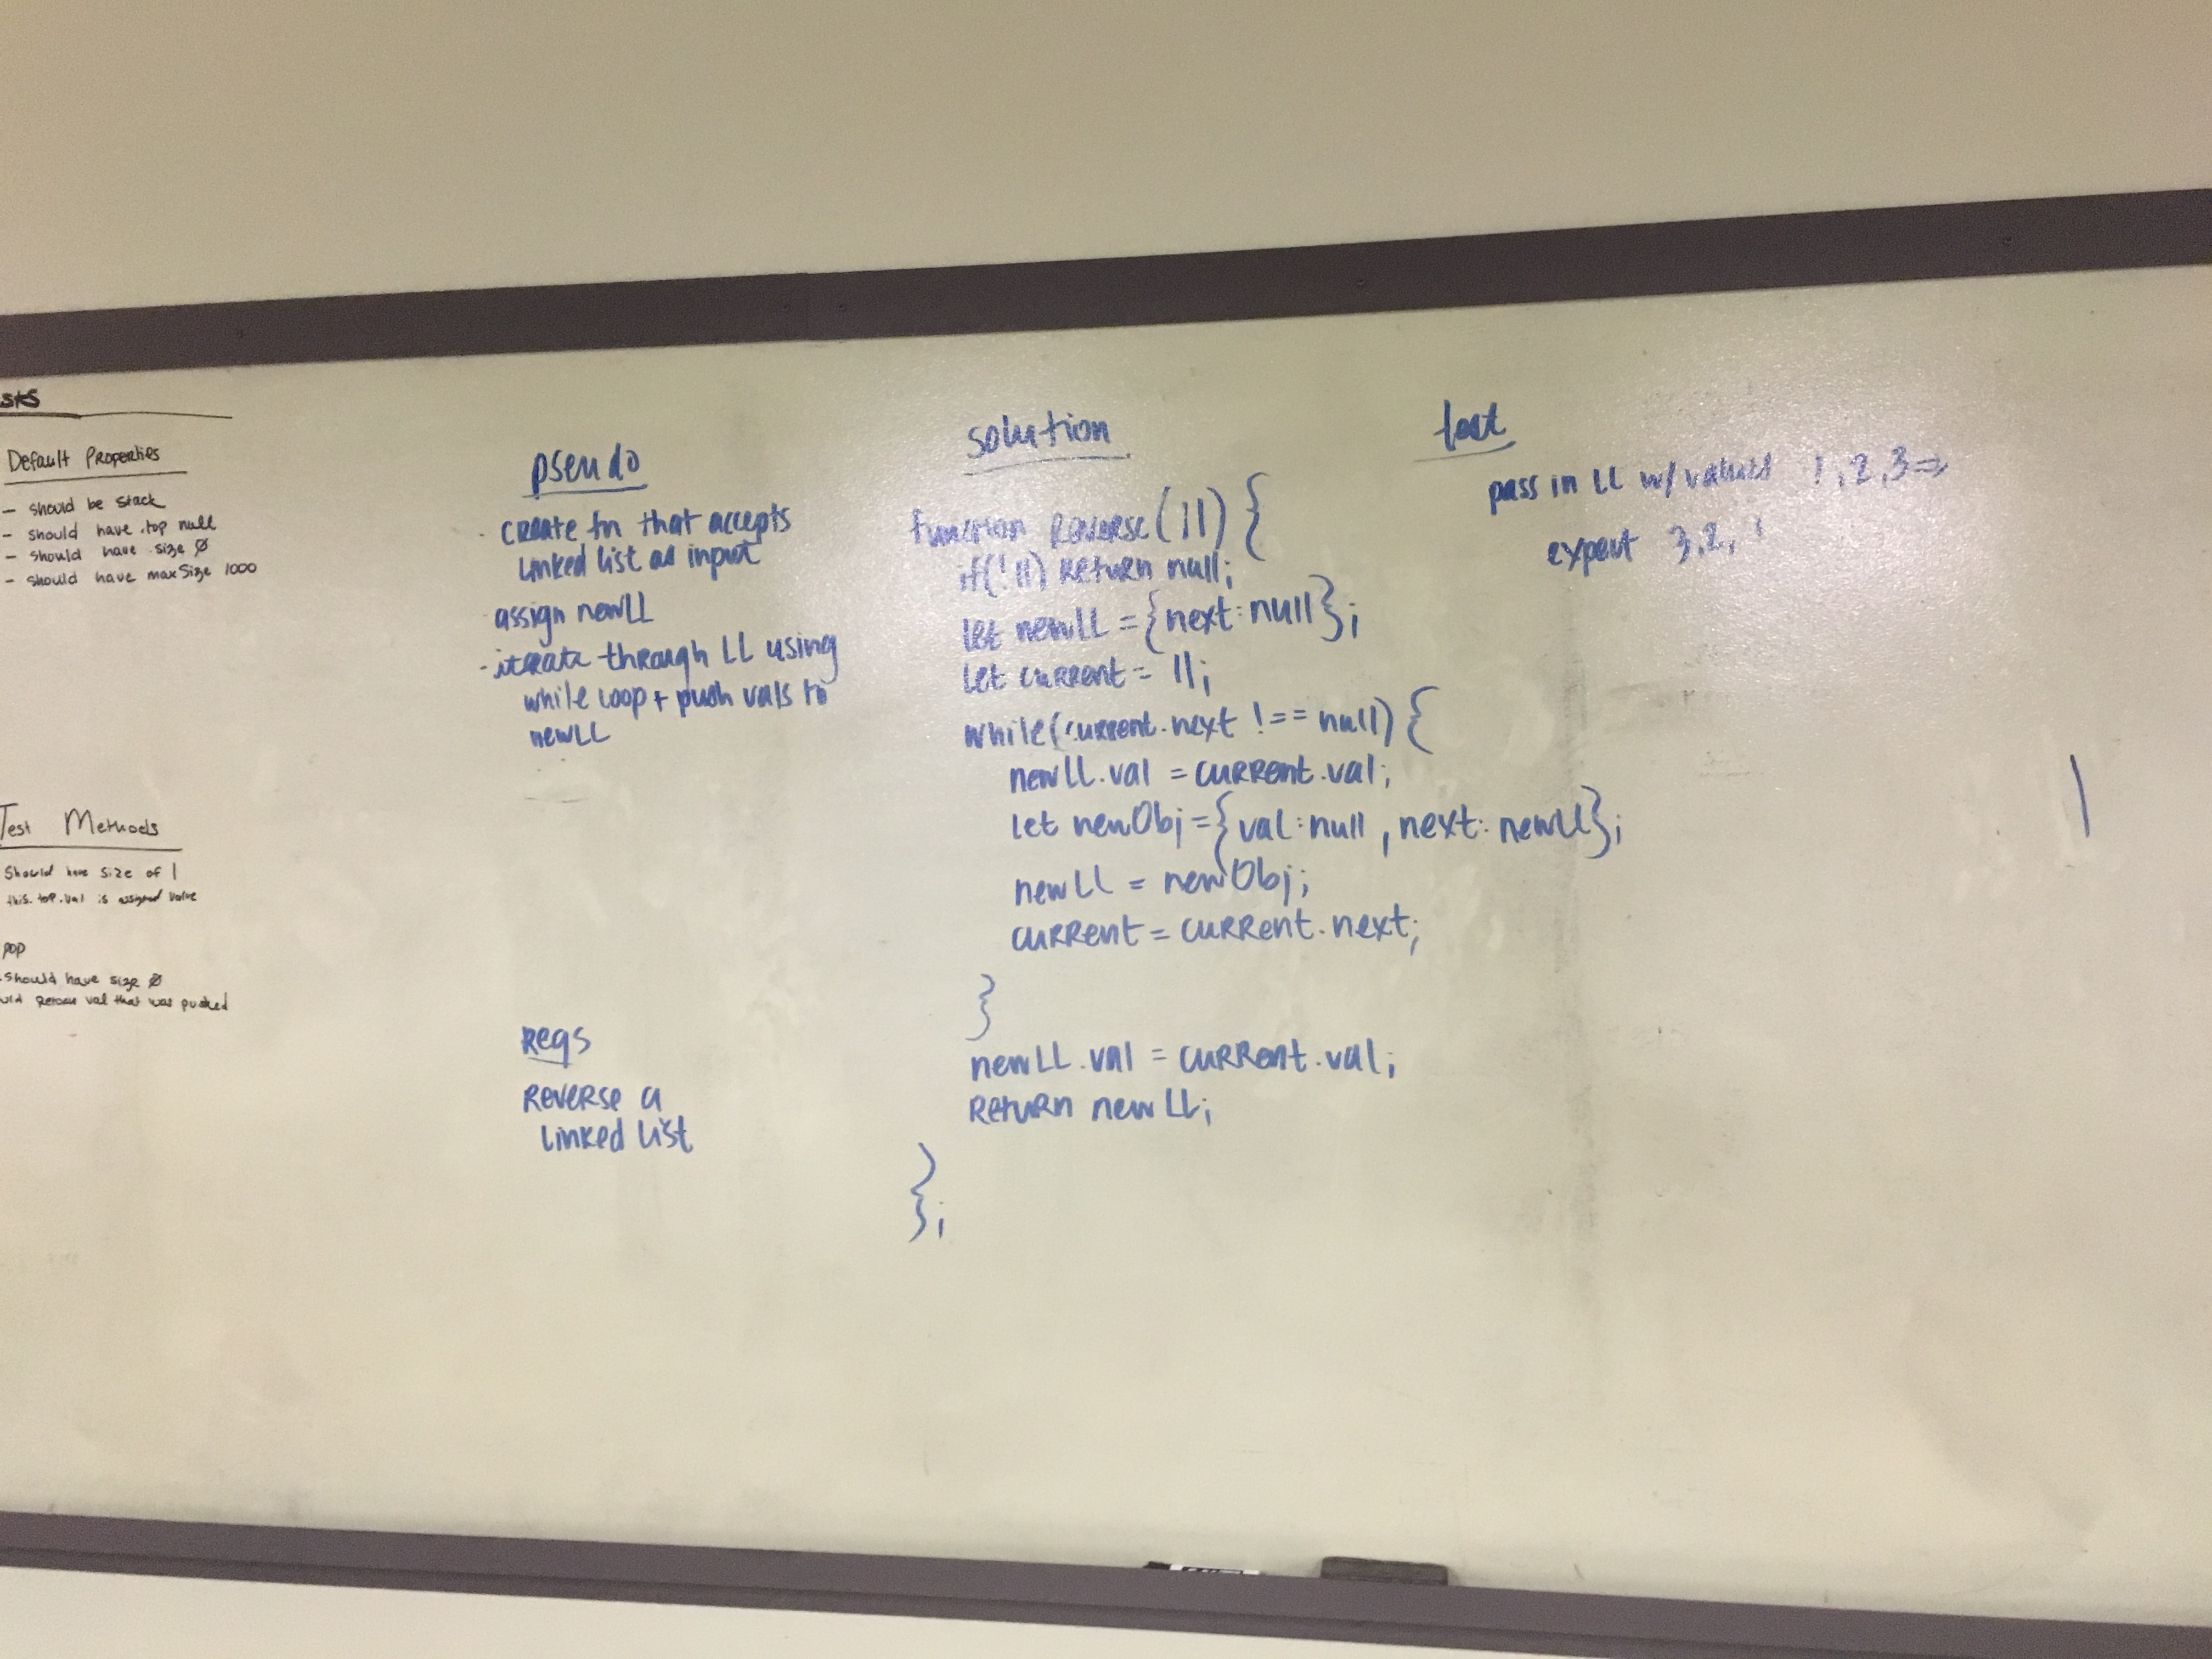 sts
Default Properties
- should be stack
- should have .top null
- should have .size Ø
- should have maxSize 1000
Test Methods
Should have size of 1
this.top.val is assigned value
pop
- Should have size Ø
val that was pushed
pseudo
- create fn that accepts
linked list as input
- assign newLL
- iterate through LL using
while loop + push vals to
newLL
Reqs
Reverse a
linked list
solution
function reverse(ll) {
if(!ll) return null;
let newLL = {next: null};
let current = ll;
while(current.next !== null) {
newLL.val = current.val;
let newObj = {val: null, next: newLL};
newLL = newObj;
current = current.next;
}
newLL.val = current.val;
Return newLL;
};
test
pass in LL w/ values 1, 2, 3 =>
expect 3, 2, 1